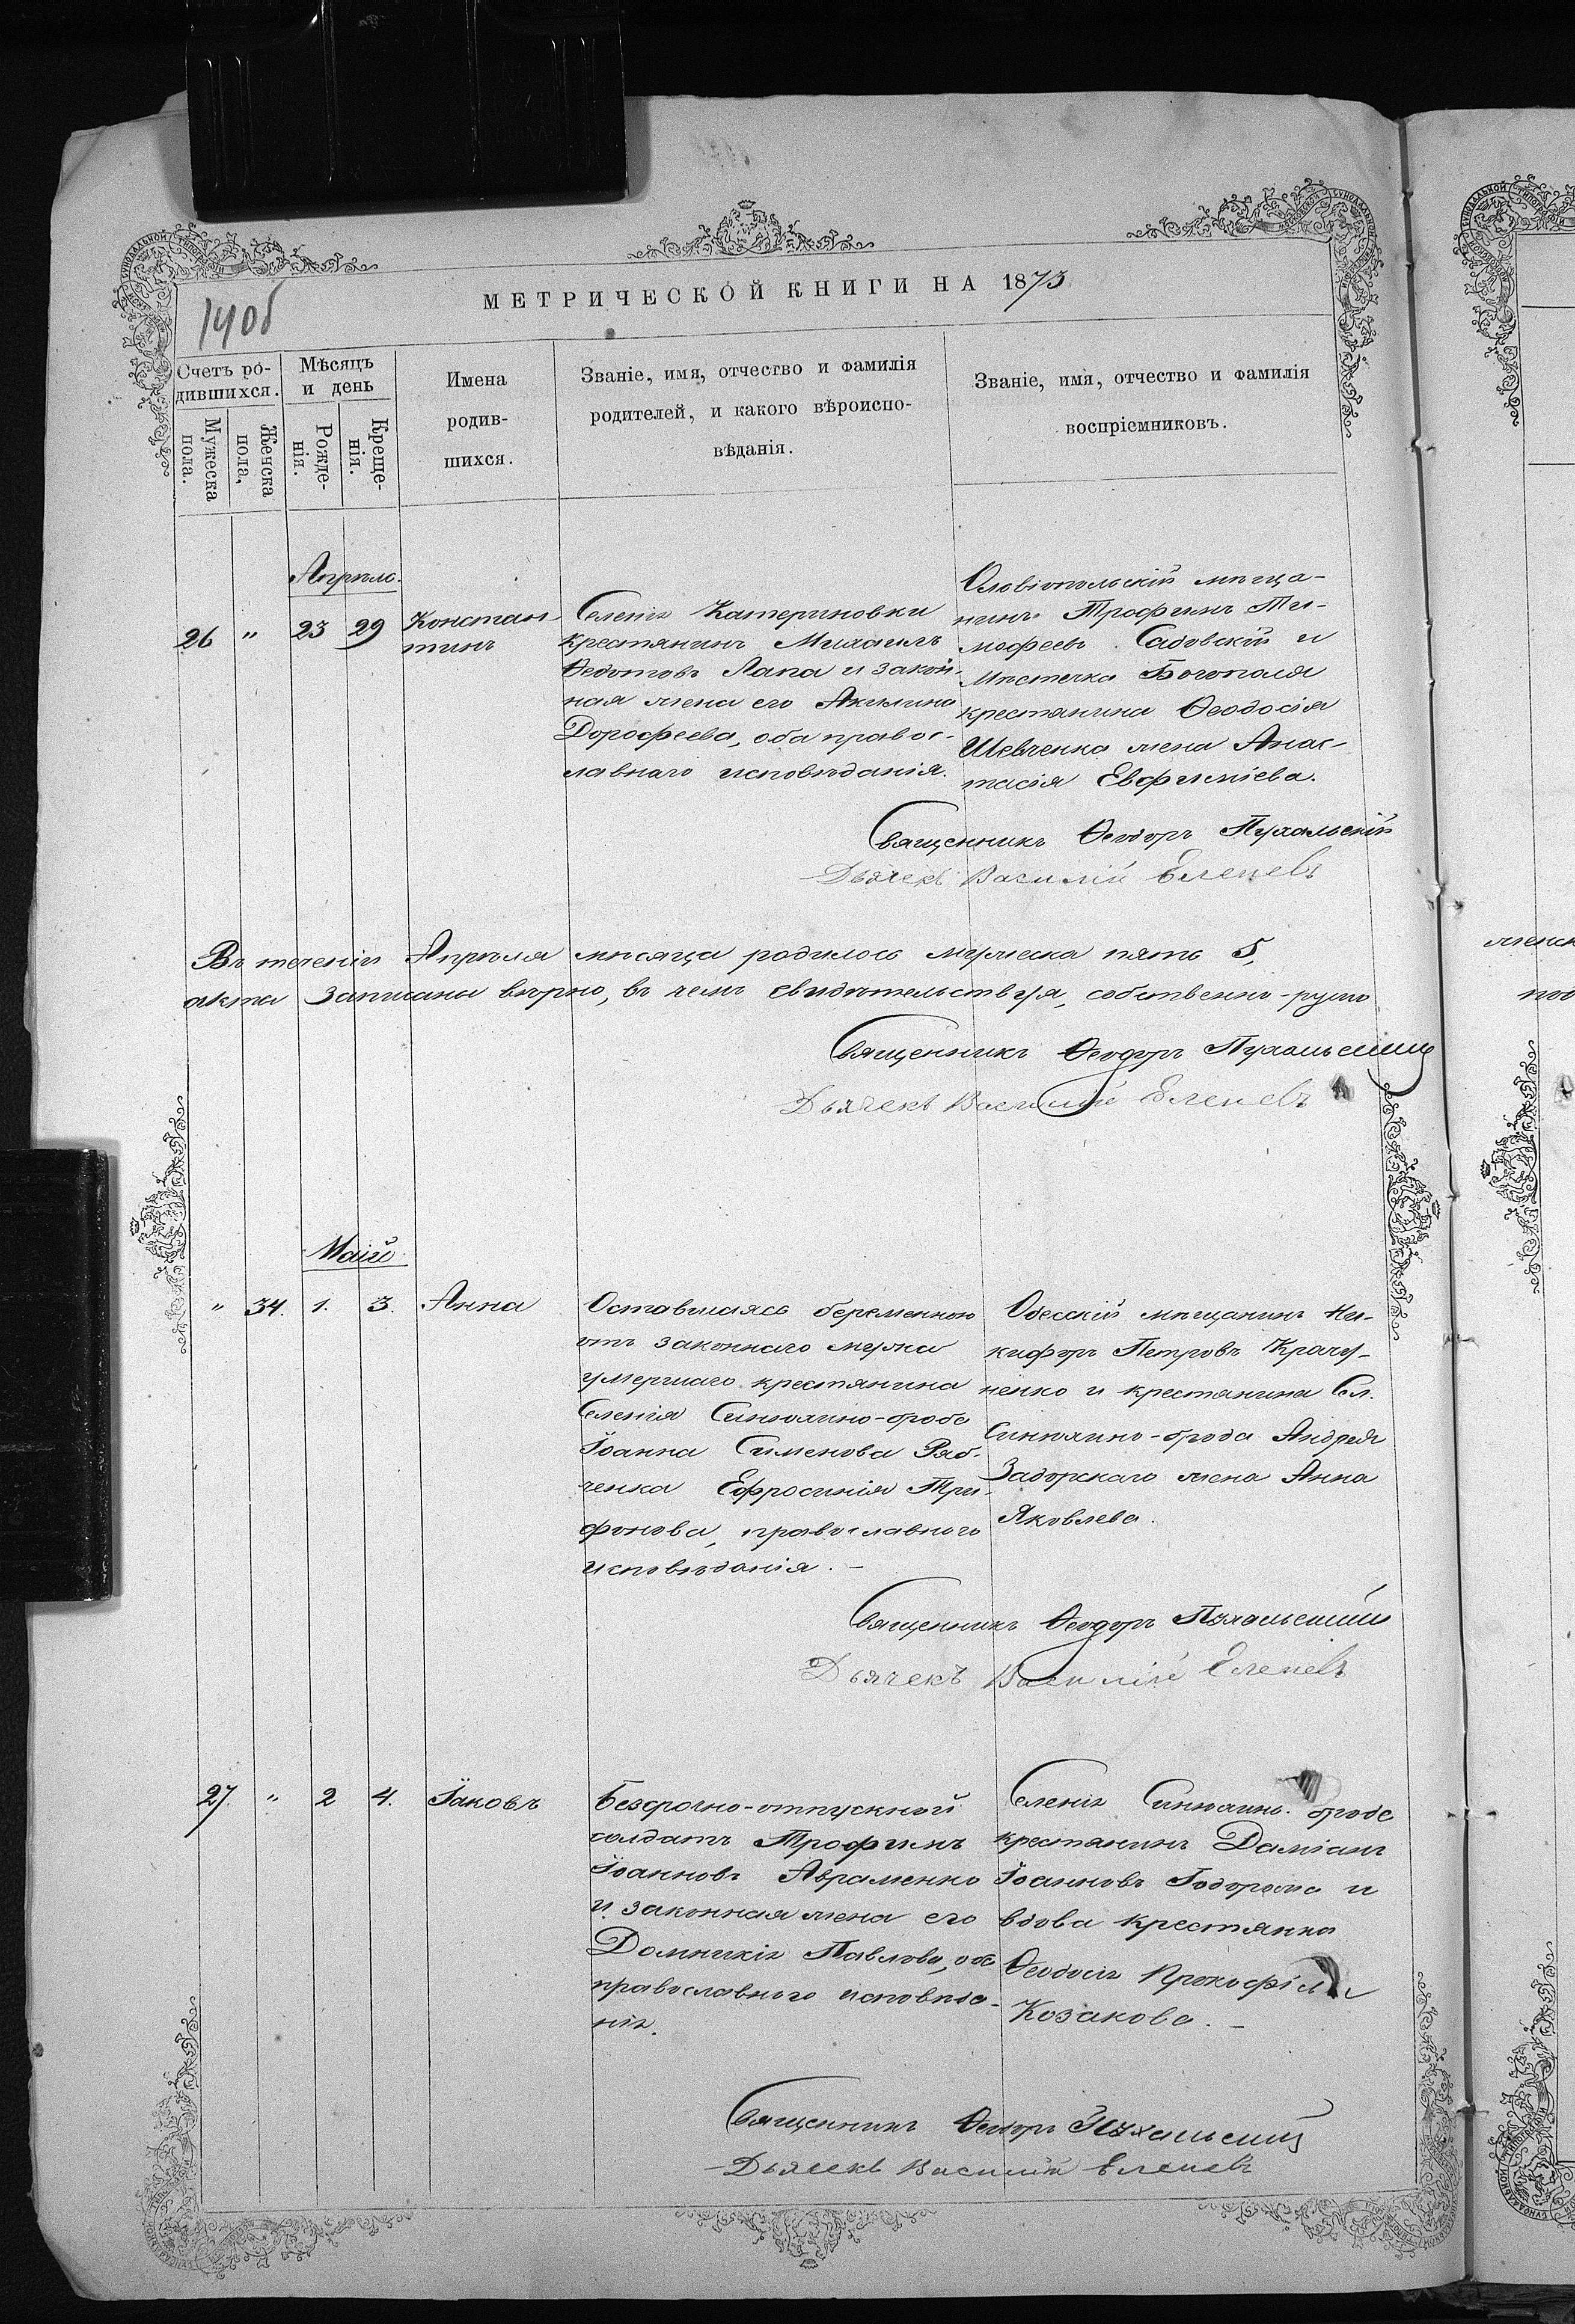 МЕТРИЧЕСКОЙ КНИГИ НА 1873
140б
Счетъ родившихся.
Мужеска пола.
Женска пола,
Мѣсяцъ и день
Рожденія.
Крещенія.
Имена
родив-
шихся.
Званіе, имя, отчество и фамилія
родителей, и какого вѣроиспо-
вѣданія.
Званіе, имя, отчество и фамилія
воспріемниковъ.
Апрѣль.
26 " 23 29
Констан
тинъ
Селенія Катериновки
крестянинъ Михаилъ
Ѳедотовъ Лапа и закон-
ная жена его Акилина
Дорофеева, оба правос-
лавнаго исповѣданія.
Ольвіопольскій мѣща-
нинъ Трофимъ Ти-
мофеевъ Садовскій и
Мѣстечка Богополя
крестянина Ѳеодосія
Шевченка жена Анас-
тасія Евфиміева.
Священникъ Ѳеодоръ Пухальскій
Дьячекъ Василій Еленевъ
Въ теченіи Апрѣля мѣсяца родилось мужеска пять 5,
акта записаны вѣрно, въ чемъ свидѣтельствуя, собственно-ручно
Священникъ Ѳеодоръ Пухальскій
Дьячекъ Василій Еленевъ
Маій
" 34. 1. 3.
Анна
Оставшаяся беременною
отъ законнаго мужа
умершаго крестянина
Селенія Синюхино-брода
Іоанна Сименова Ряб-
ченка Ефросинія Три-
фонова, православного
исповѣданія. –
Одесскій мѣщанинъ Ни-
кифоръ Петровъ Крачу-
ненко и крестянина Сел.
Синюхино-брода Андрея
Задорскаго жена Анна
Яковлева.
Священникъ Ѳеодоръ Пухальскій
Дьячекъ Василій Еленевъ
27. " 2 4.
Іаковъ
Безсрочно-отпускной
солдатъ Трофимъ
Іоанновъ Авраменко
и законная жена его
Домникія Павлова, оба
православного исповѣда-
нія.
Селенія Синюхино-брода
крестянинъ Даміанъ
Іоанновъ и
вдова крестянка
Ѳеодосія
Козакова. –
Священникъ Ѳеодоръ Пухальскій
Дьячекъ Василій Еленевъ